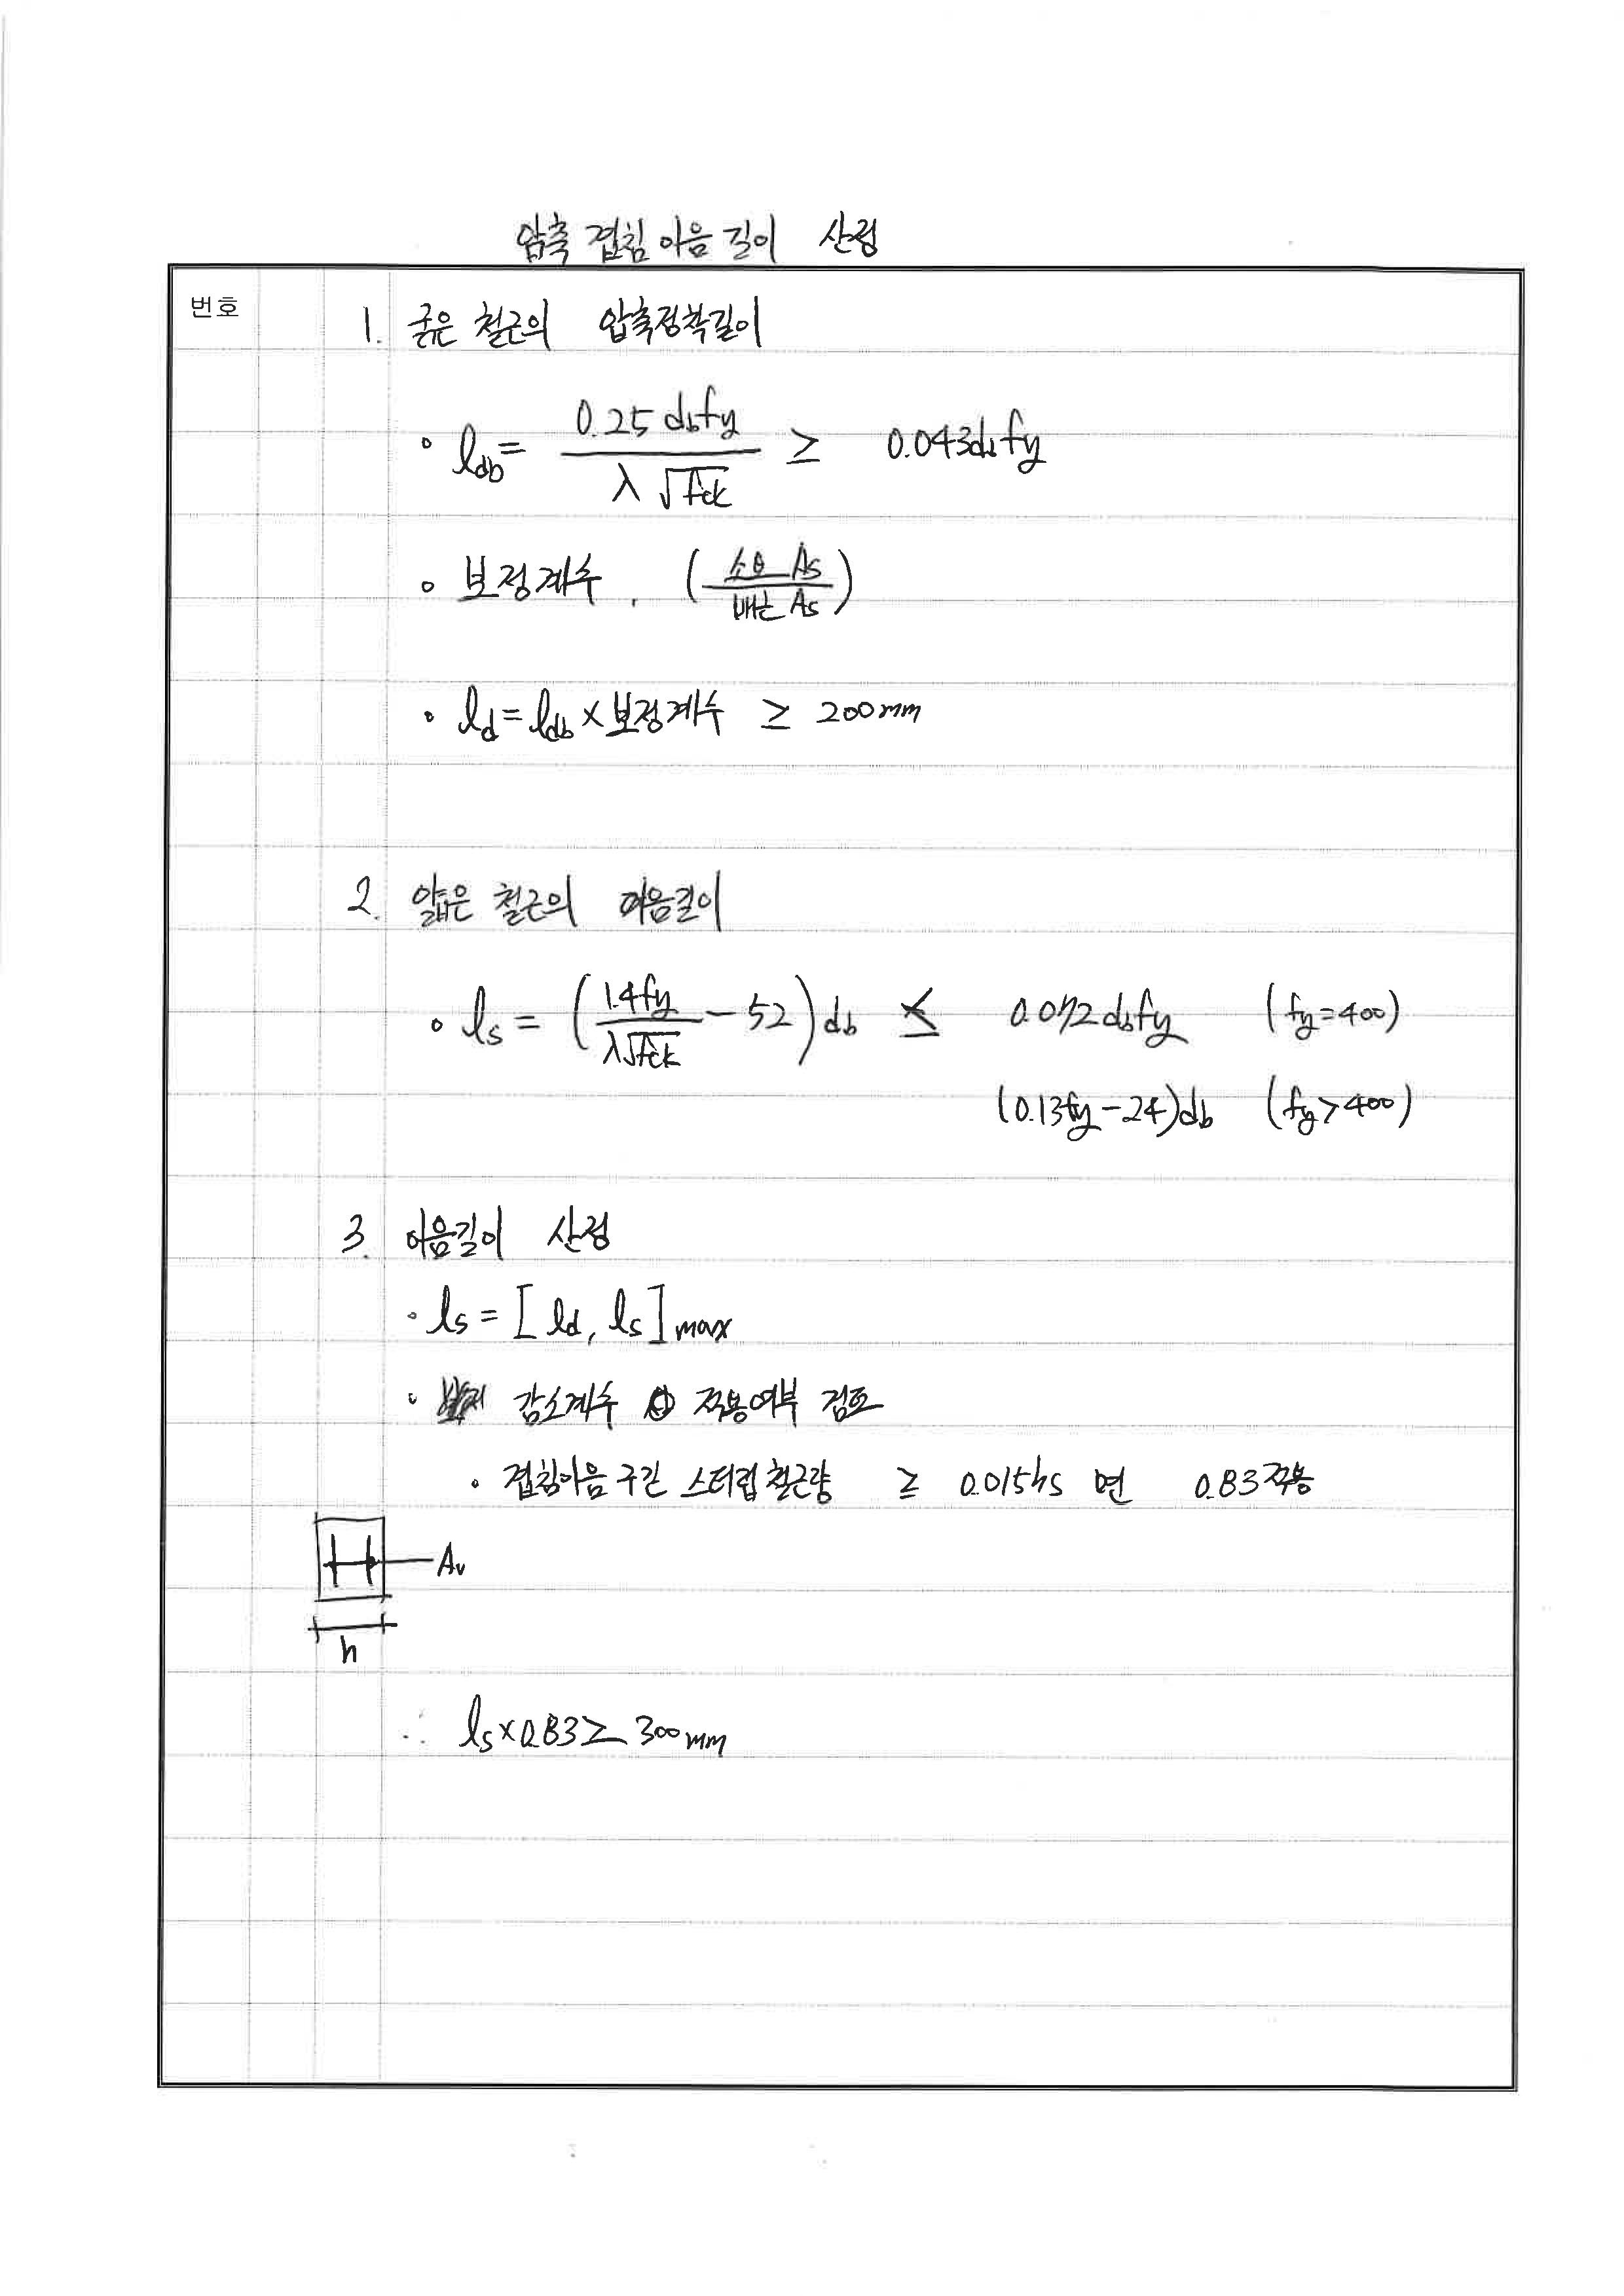 압축 겹침 이음 길이 산정
번호
1. 굵은 철근의 압축정착길이
∘ ldb = 0.25 db fy / λ√fck ≥ 0.043 db fy
∘ 보정계수. (소요 As / 배근 As)
∘ ld = ldb × 보정계수 ≥ 200mm
2. 얇은 철근의 이음길이
∘ ls = (1.4fy / λ√fck - 52) db ≤ 0.072 db fy (fy=400)
(0.13fy - 24)db (fy>400)
3. 이음길이 산정
∘ ls = [ld, ls]max
∘ 감소계수 적용여부 검토
∘ 겹침이음 구간 스터럽 철근량 ≥ 0.0015hs 면 0.83 적용
Av
h
∴ ls×0.83 ≥ 300mm